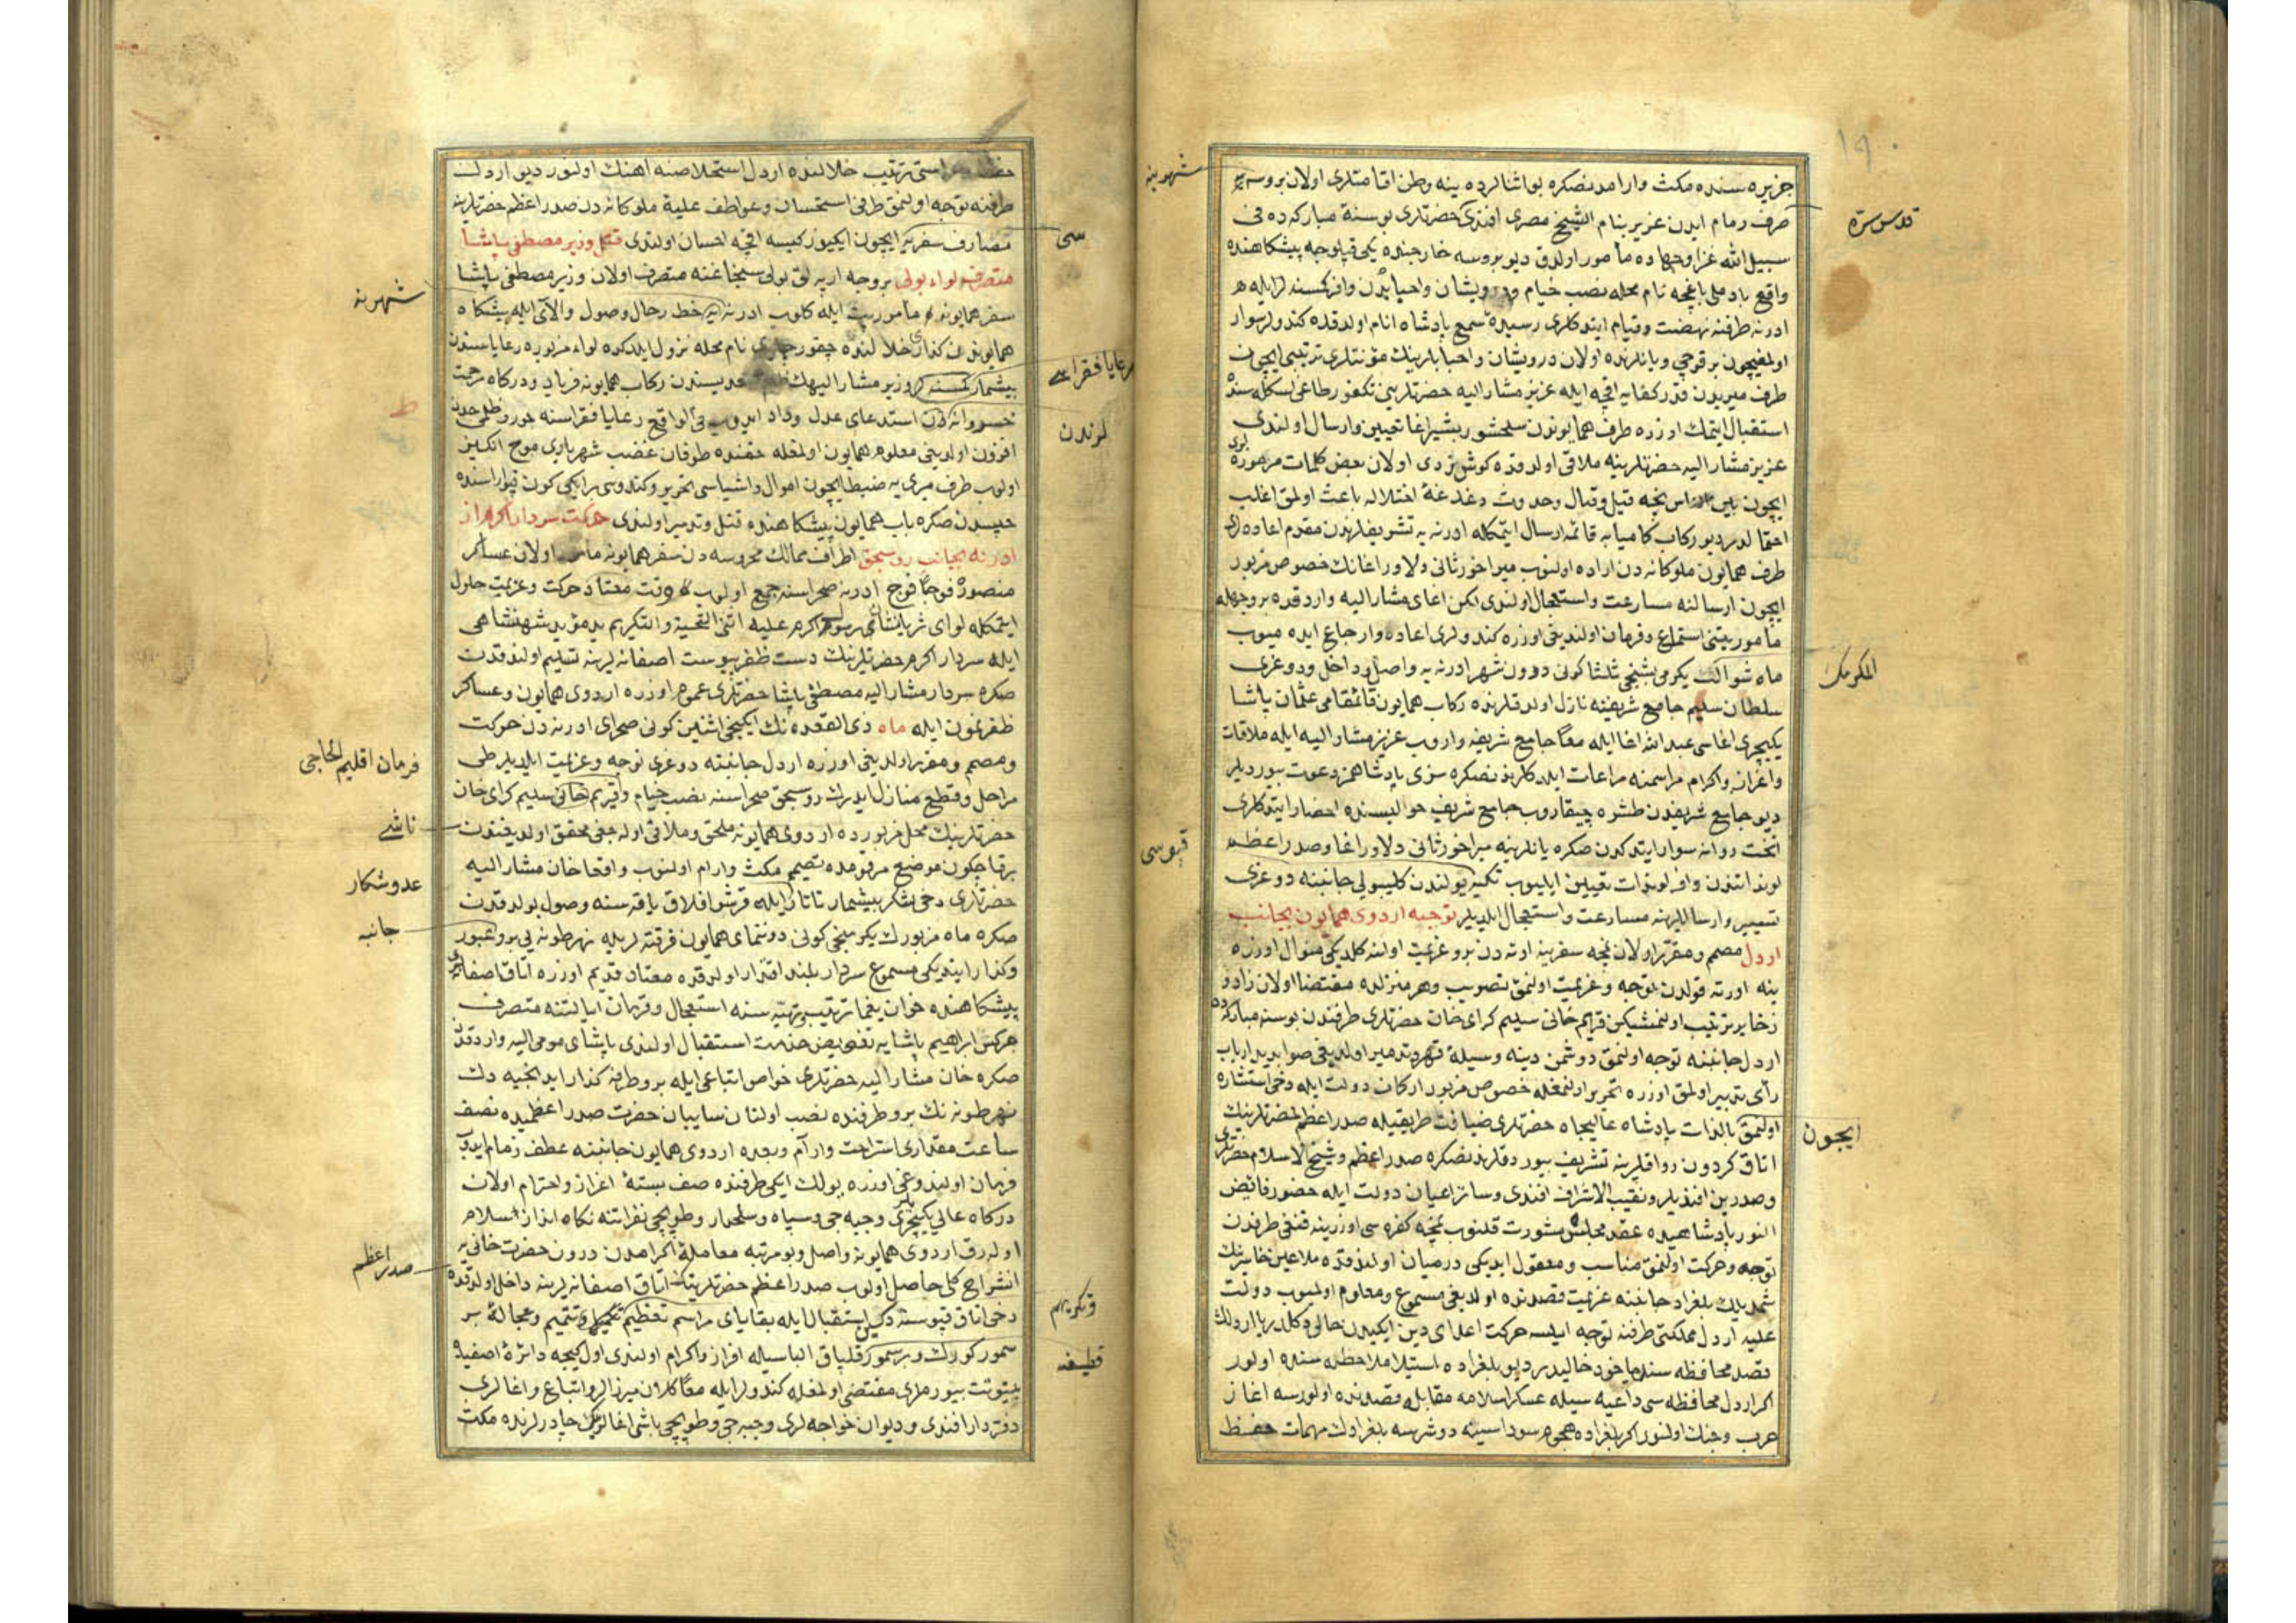 شهرینه
جزیره سنده مکث وارامدنصکره بواثنالرده ینه وطن اقامتلری اولان بروسه یه
قدس سره
صرف زمام ایدن عزیز بنام الشیخ مصری افندی حضرتلری بوسنهٔ مبارکه ده فی
سبیل الله غزا وجهاده مأمور اولدق دیو بروسه خارجنده یکی قپلوجه پیشکاهنده
واقع بادملی باغچه نام محله نصب خیام ودرویشان واحبابدن وافر کمسنه لر ایله
ادرنه طرفنه نهضت وقیام ایتدکلری رسیدهٔ سمع پادشاه انام اولدقده کندولر سوار
اولمغیچون بر قوچی ویانلرنده اولان درویشان واحبابلرینک مؤنتلری ترتیبی ایچون
طرف میریدن قدر کفایه اقچه ایله عزیز مشارالیه حضرتلرینی تکفور طاغی اسکله سنده
استقبال ایتمک اوزره طرف همایوندن سلحشور بشیر اغا تعیین وارسال اولندی
عزیز مشارالیه حضرتلرینه ملاقی اولدقده کوش زدی اولان بعض کلمات مرموزه لری
ایچون بین الناس نیجه قیل وقال وحدوث دغدغهٔ اختلاله باعث اولمق اغلب
احتمالدر دیو رکاب کامیابه قائمه ارسال ایتمکله ادرنه یه تشریفلرندن مقدم اعاده لری
طرف همایون ملوکانه دن اراده اولنوب میراخور ثانی دلاور اغانک خصوص مزبور
ایچون ارسالنه مسارعت واستعجال اولندی لکن اغای مشارالیه واردقده بر وجهله
مأموریتنی استماع وفرمان اولندیغی اوزره کندولری اعاده وارجاع ایده میوب
المکرمک
ماه شوالک یکرمی بشنجی ثلثا کونی درون شهر ادرنه یه واصل وداخل ودوغری
سلطان سلیم جامع شریفنه نازل اولدقلرنده رکاب همایون قائمقامی عثمان پاشا
یکیچری اغاسی عبدالله اغا ایله معا جامع شریفه واروب عزیز مشارالیه ایله ملاقات
واعزاز واکرام مراسمنه مراعات ایلدکلرندنصکره سزی پادشاهمز دعوت بیوردیلر
دیو جامع شریفدن طشره چیقاروب جامع شریف حوالیسنده احضار ایتدکلری
قپوسی
تخت روانه سوار ایتدکدن صکره یانلرینه میراخور ثانی دلاور اغا وصدراعظم
لونداتندن وافر لوندات تعیین ایلیوب تکبیر یولندن کلیبولی جانبنه دوغری
تسییر وارساللرینه مسارعت واستعجال ایلدیلر توجیه اردوی همایون بجانب
اردل مصمم ومقرر اولان نمچه سفرینه اورته دن برو عزیمت اولنه کلدیکی منوال اوزره
ینه اورته قولدن توجه وعزیمت اولنمق تصویب وهر منزلده مقتضا اولان زاد و
زخایر ترتیب اولنمشیکن قریم خانی سلیم کرای خان حضرتلری طرفندن بوسنهٔ مبارکه ده
اردل جانبنه توجه اولنمق دوشمن دینه وسیلهٔ قهر وتدمیر اولدیغی صوابدید ارباب
رأی تدبیر اولمق اوزره تحریر اولنمغله خصوص مزبور ارکان دولت ایله دخی استشاره
ایچون
اولنمق بالذات پادشاه عالیجاه حضرتلری ضیافت طریقیله صدراعظم حضرتلرینک
اتاق کردون رواقلرینه تشریف بیوردقلرندنصکره صدراعظم وشیخ الاسلام حضرتلری
وصدرین افندیلر ونقیب الاشراف افندی وسائر اعیان دولت ایله حضور فائض
النور پادشاهیده عقد مجلس مشورت قلنوب نمچه کفره سی اوزرینه قنغی طرفدن
توجه وحرکت اولنمق مناسب ومعقول ایدیکی درمیان اولندقده ملاعین خاسرینک
شمدیلک بلغراد جانبنه عزیمت قصدنده اولدیغی مسموع ومعلوم اولمیوب دولت
علیه اردل مملکتی طرفنه توجه ایلسه حرکت اعدای دین ایکیدن خالی دکلدر یا اردلک
قصد محافظه سنده یاخود خالیدر دیو بلغراده استیلا ملاحظه سنده اولور
اکر اردل محافظه سی داعیه سیله عسکر اسلامه مقابله قصدنده اولورسه اغاز
حرب وجنک اولنور اکر بلغراده هجوم سوداسینه دوشرسه بلغرادک مهمات حفظ
وحراستی ترتیب خلالنده اردل استخلاصنه اهنک اولنور دیو اردلک
طرفنه توجه اولنمق طرفی استحسان وعواطف علیهٔ ملوکانه دن صدراعظم حضرتلرینه
سی
مصارف سفریه ایچون ایکیوز کیسه اقچه احسان اولندی قتل وزیر مصطفی پاشا
متصرف لواء بولی بروجه ارپه لق بولی سنجاغنه متصرف اولان وزیر مصطفی پاشا
شهرینه
سفر همایونه مأموریت ایله کلوب ادرنه یه حط رحال وصول والای ایله پیشکاه
همایوندن کذاری خلالنده چقور چایری نام محله نزول ایلدکده لواء مزبوره رعایاسندن
رعایا فقراسی
بیشمار کمسنه لر وزیر مشارالیهک ظلم وتعدیسندن رکاب همایونه فریاد ودرکاه مرحمت
لرندن
خسروانه دن استدعای عدل وداد ایدوب فی الواقع رعایا فقراسنه جور وظلمی حددن
افزون اولدیغی معلوم همایون اولمغله حقنده طوفان غضب شهریاری موج انکیز
اولوب طرف میری یه ضبط ایچون اموال واشیاسی تحریر وکندوسی بر ایکی کون قپو اراسنده
حبسدن صکره باب همایون پیشکاهنده قتل وتدمیر اولندی حرکت سردار اکرم از
ادرنه بجانب روسجق اطراف ممالک محروسه دن سفر همایونه مأمور اولان عساکر
منصوره فوجا فوج ادرنه صحراسنه جمع اولوب وقت معتاد حرکت وعزیمت حلول
ایتمکله لوای ثریانشان رسول اکرم علیه اثنی التحیة والتکریم ید مؤید شهنشاهی
ایله سردار اکرم حضرتلرینک دست ظفر پیوست اصفانه لرینه تسلیم اولندقدن
صکره سردار مشارالیه مصطفی پاشا حضرتلری عموم اوزره اردوی همایون وعساکر
ظفرنمون ایله ماه ذی القعده نک ایکنجی اثنین کونی صحرای ادرنه دن حرکت
ومصمم ومقرر اولدیغی اوزره اردل جانبنه دوغری توجه وعزیمت ایلدیلر طی
فرمان اقلیم الحاجی
مراحل وقطع منازل ایدرک روسجق صحراسنه نصب خیام وقریم خانی سلیم کرای خان
ناشی
حضرتلرینک محل مزبورده اردوی همایونه ملحق وملاقی اوله جغی محقق اولدیغندن
برقاچ کون موضع مرقومده تصمیم مکث وارام اولنوب واقعا خان مشارالیه
عدوشکار
حضرتلری دخی لشکر بیشمار تاتار ایله قرشو افلاق یاقه سنه وصول بولدقدن
جانبه
صکره ماه مزبورک یکرمنجی کونی دوننمای همایون فرقته لریله نهر طونه یی برو عبور
وکذار ایتدیکی مسموع سردار بلند اقتدار اولدقده معتاد قدیم اوزره اتاق اصفانه لری
پیشکاهنده خوان یغما ترتیب وتهیه سنه استعجال وقرمان ایالتنه متصرف
چرکس ابراهیم پاشایه تفویض خدمت استقبال اولندی پاشای مومی الیه واردقدن
صکره خان مشارالیه حضرتلری خواص اتباعی ایله برو طرفه کذار ایدنجیه دک
نهر طونه نک برو طرفنده نصب اولنان سایبان حضرت صدراعظمیده نصف
ساعت مقداری استراحت وارام وبعده اردوی همایون جانبنه عطف زمام ایدوب
فرمان اولندوغی اوزره یولک ایکی طرفنده صف بستهٔ اعزاز واحترام اولان
درکاه عالی یکیچریلری وجبه جی وسپاه وسلحدار وطوپجی نفراتنه نکاه انداز سلام
صدراعظم
اولدرق اردوی همایونه واصل وبو مرتبه معاملهٔ اکرامدن درون حضرت خانی یه
انشراح کلی حاصل اولوب صدراعظم حضرتلرینک اتاق اصفانه لرینه داخل اولدقده
وتکریم
دخی اتاق قپوسنه دکین استقبال ایله بقایای مراسم تعظیم تکمیل وتتمیم وعجالة بر
قطیفه
سمور کورک وبر سمور قلپاق الباسیله افراز واکرام اولندی اول کیجه دائرهٔ اصفیده
بیتوتت بیورملری مقتضی اولمغله کندولر ایله معا کلان میرزالر واتباع واغالری
دفتردار افندی ودیوان خواجه لری وجبه جی وطوپجی باشی اغالرینک چادرلرنده مکث